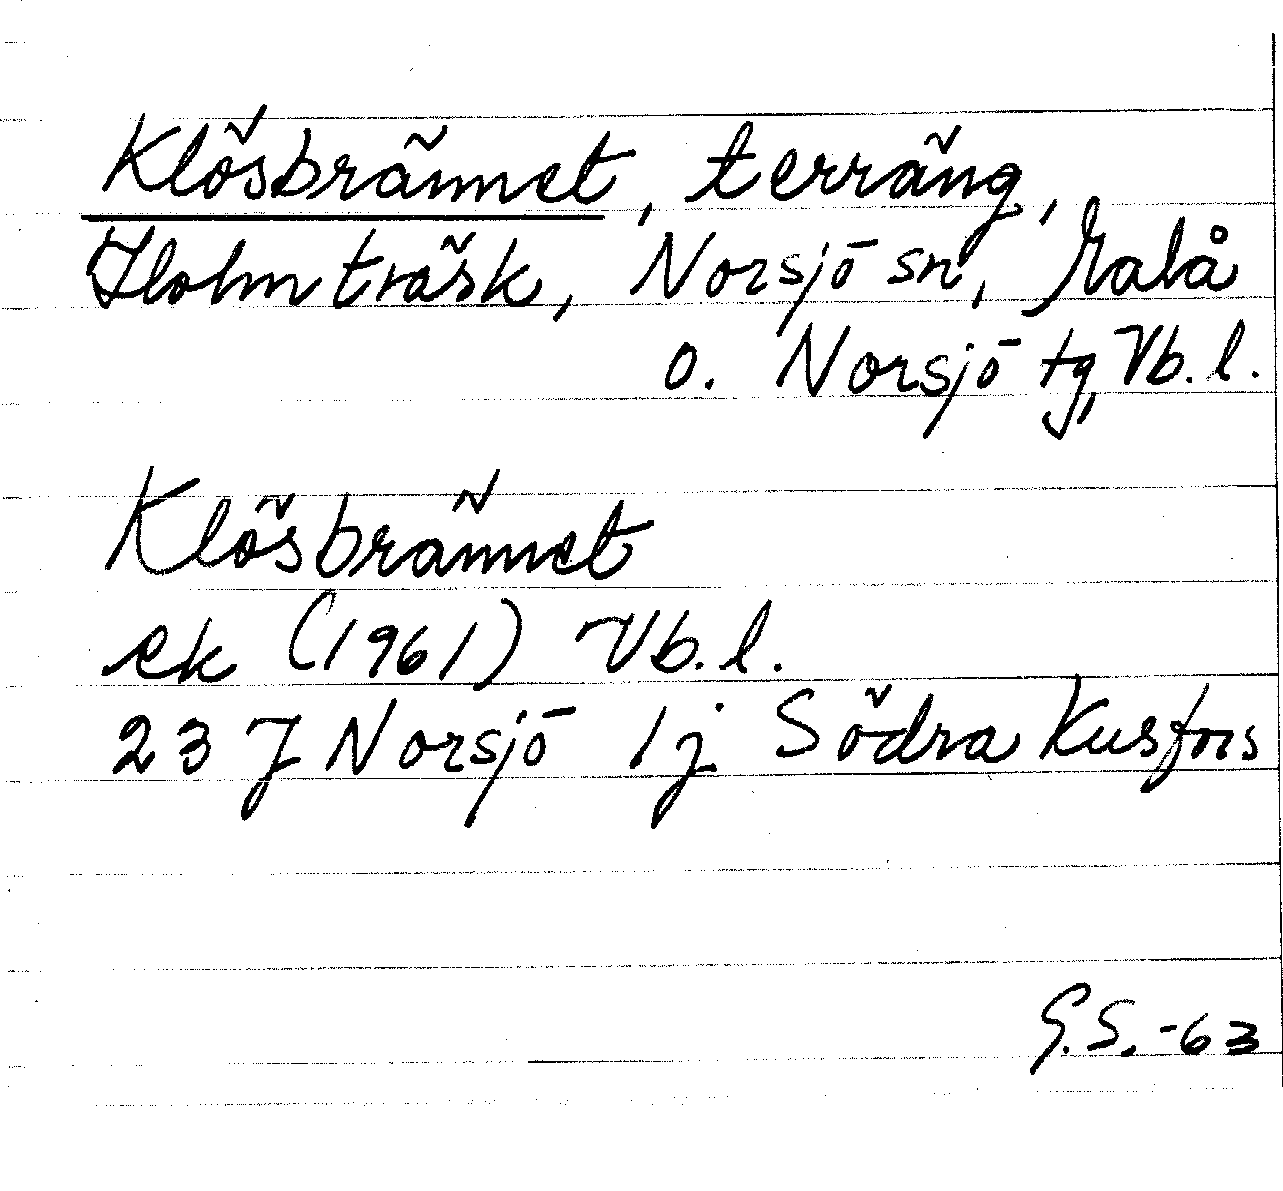 Klösbrännet, terräng,
Holmträsk, Norsjö sn, Malå
o. Norsjö tg, Vb. l.
Klösbrännet
ek (1961) Vb. l.
23 J Norsjö 1j Södra Kusfors
G.S.-63